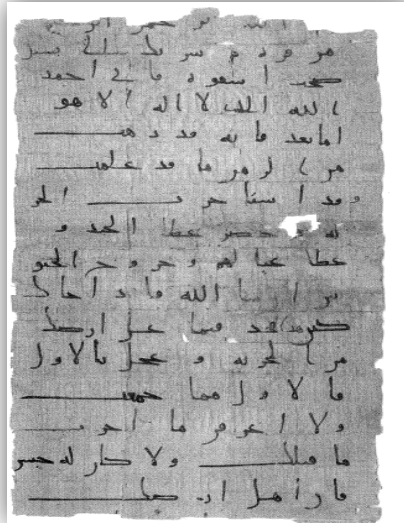 من قره بن شريك الى بسيل
صحب اشقوه فانى احمد
الله الذى لا اله الا هو
اما بعد فانه قد ذهب
من الزمن ما قد علمت
وقد استاخرت الجز
يه وحضر عطا الجند و
عطا عيالهم وخروج الجيو
ش ان شا الله فاذا جاك
كتبى هذا فخذ فيما على ارضك
من الجزيه و عجل بالاول
فالاول مما جمعت
ولا اعرفن ما اخرت
ما قبلك ولا كان له حبس
فان اهل